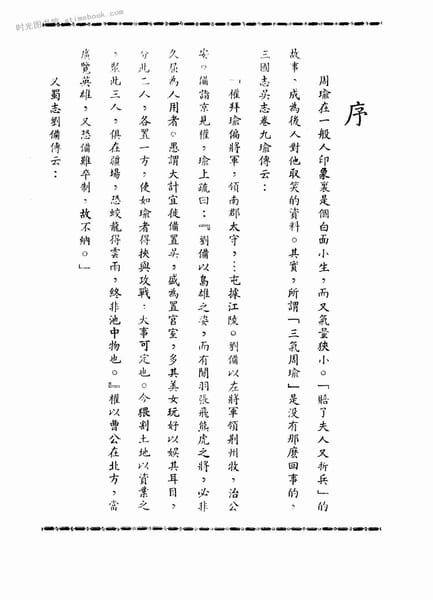 时光图书馆 - atimebook.com
序
周瑜在一般人印象裏是個白面小生，而又氣量狹小。「賠了夫人又折兵」的
故事，成為後人對他取笑的資料。其實，所謂「三氣周瑜」是沒有那麼回事的，
三國志吳志卷九瑜傳云：
「權拜瑜偏將軍，領南郡太守，…屯據江陵。劉備以在將軍領荊州牧，治公
安。備詣京見權，瑜上疏曰：『劉備以梟雄之姿，而有關羽張飛熊虎之將，必非
久屈為人用者。愚謂大計宜徙備置吳，盛為置宮室，多其美女玩好以娛其耳目，
分此二人，各置一方，使如瑜者得挾與攻戰，大事可定也。今猥割土地以資業之
，聚此三人，俱在疆場，恐蛟龍得雲雨，終非池中物也。』權以曹公在北方，當
廣覽英雄，又恐備難卒制，故不納。」
又蜀志劉備傳云：